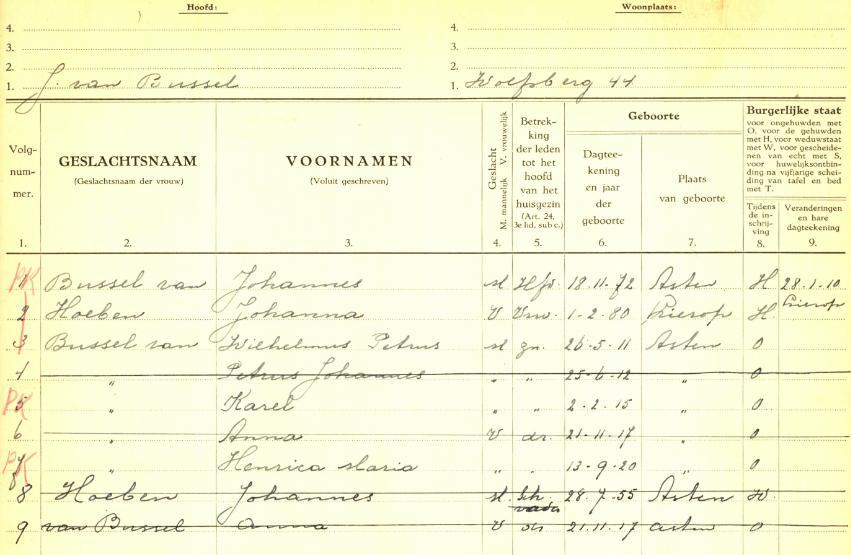 Hoofd: Woonplaats:
4. 4.
3. 3.
2. 2.
1. J. van Bussel 1. Wolfsberg 44
Volgnum-mer. GESLACHTSNAAM (Geslachtsnaam der vrouw) VOORNAMEN (Voluit geschreven) Geslacht M. mannelijk V. vrouwelijk Betrek-king der leden tot het hoofd van het huisgezin (Art. 24, 3e lid, sub c.) Geboorte Dagtee-kening en jaar der geboorte Plaats van geboorte Burgerlijke staat voor ongehuwden met O, voor de gehuwden met H, voor weduwstaat met W, voor gescheide-nen van echt met S, voor huwelijksontbin-ding na vijfjarige schei-ding van tafel en bed met T. Tijdens de in-schrij-ving Veranderingen en hare dagteekening
1. 2. 3. 4. 5. 6. 7. 8. 9.
1 Bussel van Johannes M Hfd. 18.11.72 Asten H 28.1.10
2 Hoeben Johanna V Vrw. 1-2.80 Lierop H. Lierop
3 Bussel van Wilhelmus Petrus M zn. 26-5.11 Asten O
4 " Petrus Johannes " " 25-6.12 " O
5 " Karel " " 2-2.15 " O
6 " Anna V dr. 21-11.17 " O
7 " Henrica Maria " " 13-9.20 " O
8 Hoeben Johannes M. Sch. vader 28.7.55 Asten W.
9 van Bussel Anna V dr 21.11.17 Asten O
PK
PK
PK